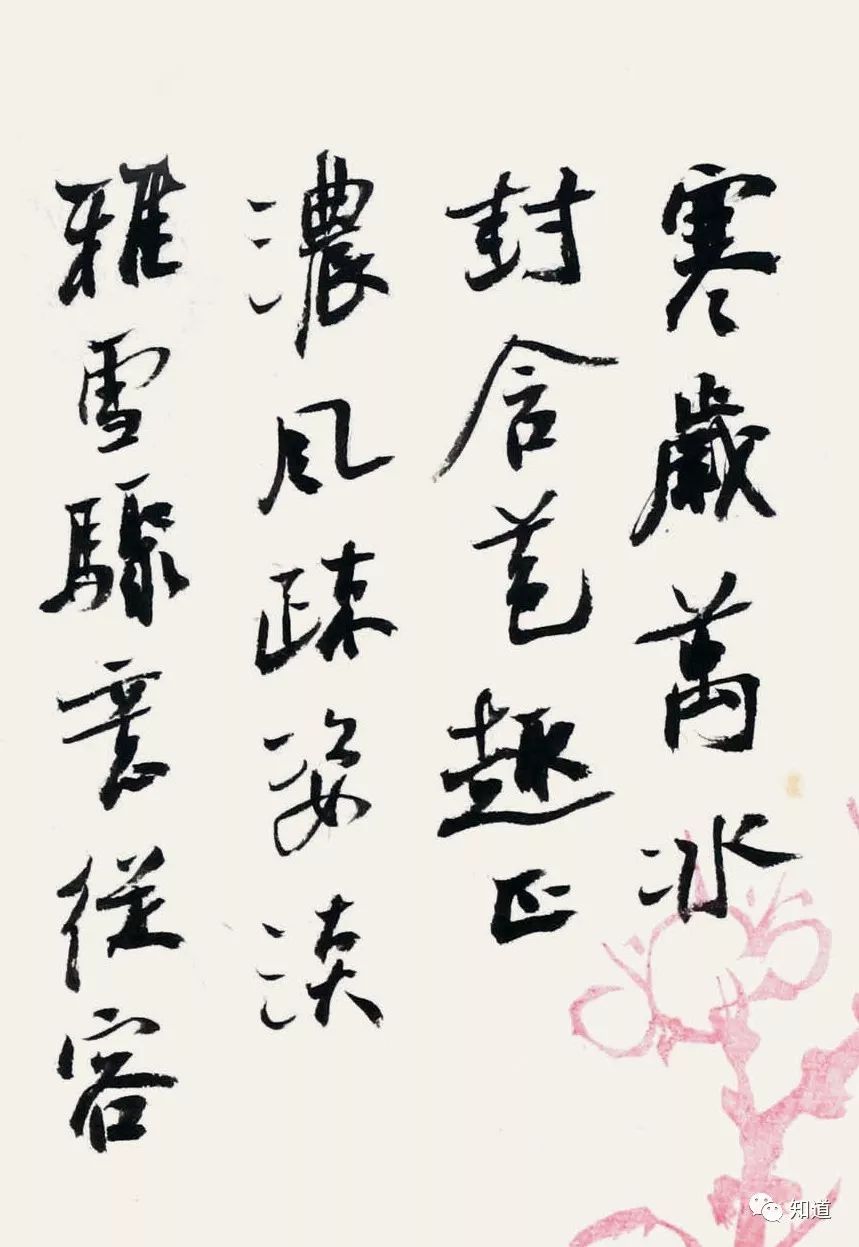 寒歲萬冰
封含苞趣正
濃風疎姿淡
雅雪驟意從容
知道